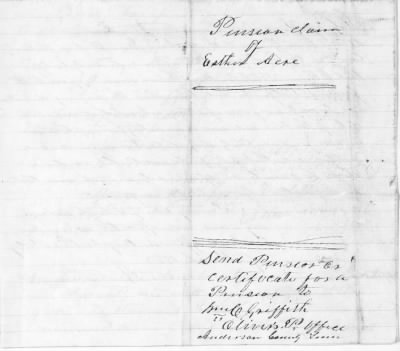 Pension claim
of
Esther Acre
Send Pensioner
certificate for a
Pension to
Wm C Griffith
Olivers P. Office
Anderson County Tenn